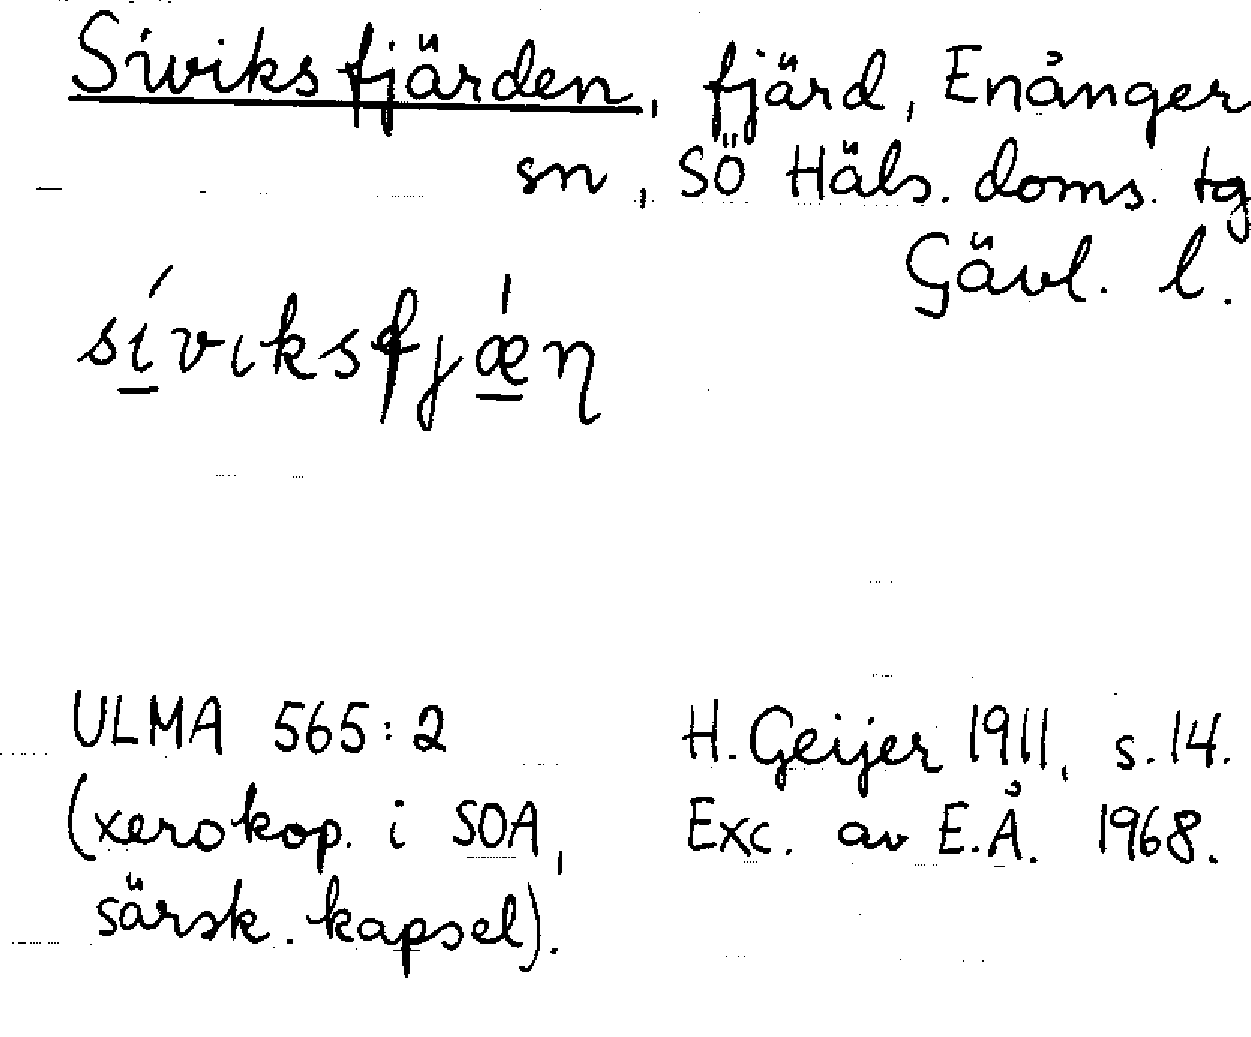 Siviksfjärden, fjärd, Enånger
sn, SÖ Häls. doms. tg
Gävl. l.
sí̱viksfjǽ̱η
ULMA 565:2
(xerokop. i SOA,
särsk. kapsel).
H. Geijer 1911, s. 14.
Exc. av E.Å. 1968.